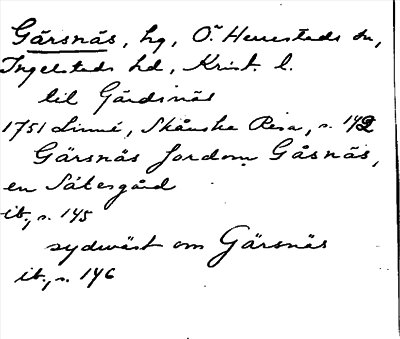 Gärsnäs, hg, Ö. Herrestads sn,
Ingelstads hd, Krist. l.
till Gärdsnäs
1751 Linné, Skånska Resa, s. 142
Gärsnäs fordom Gåsnäs,
en Sätesgård
ib., s. 145
sydwäst om Gärsnäs
ib., s. 146